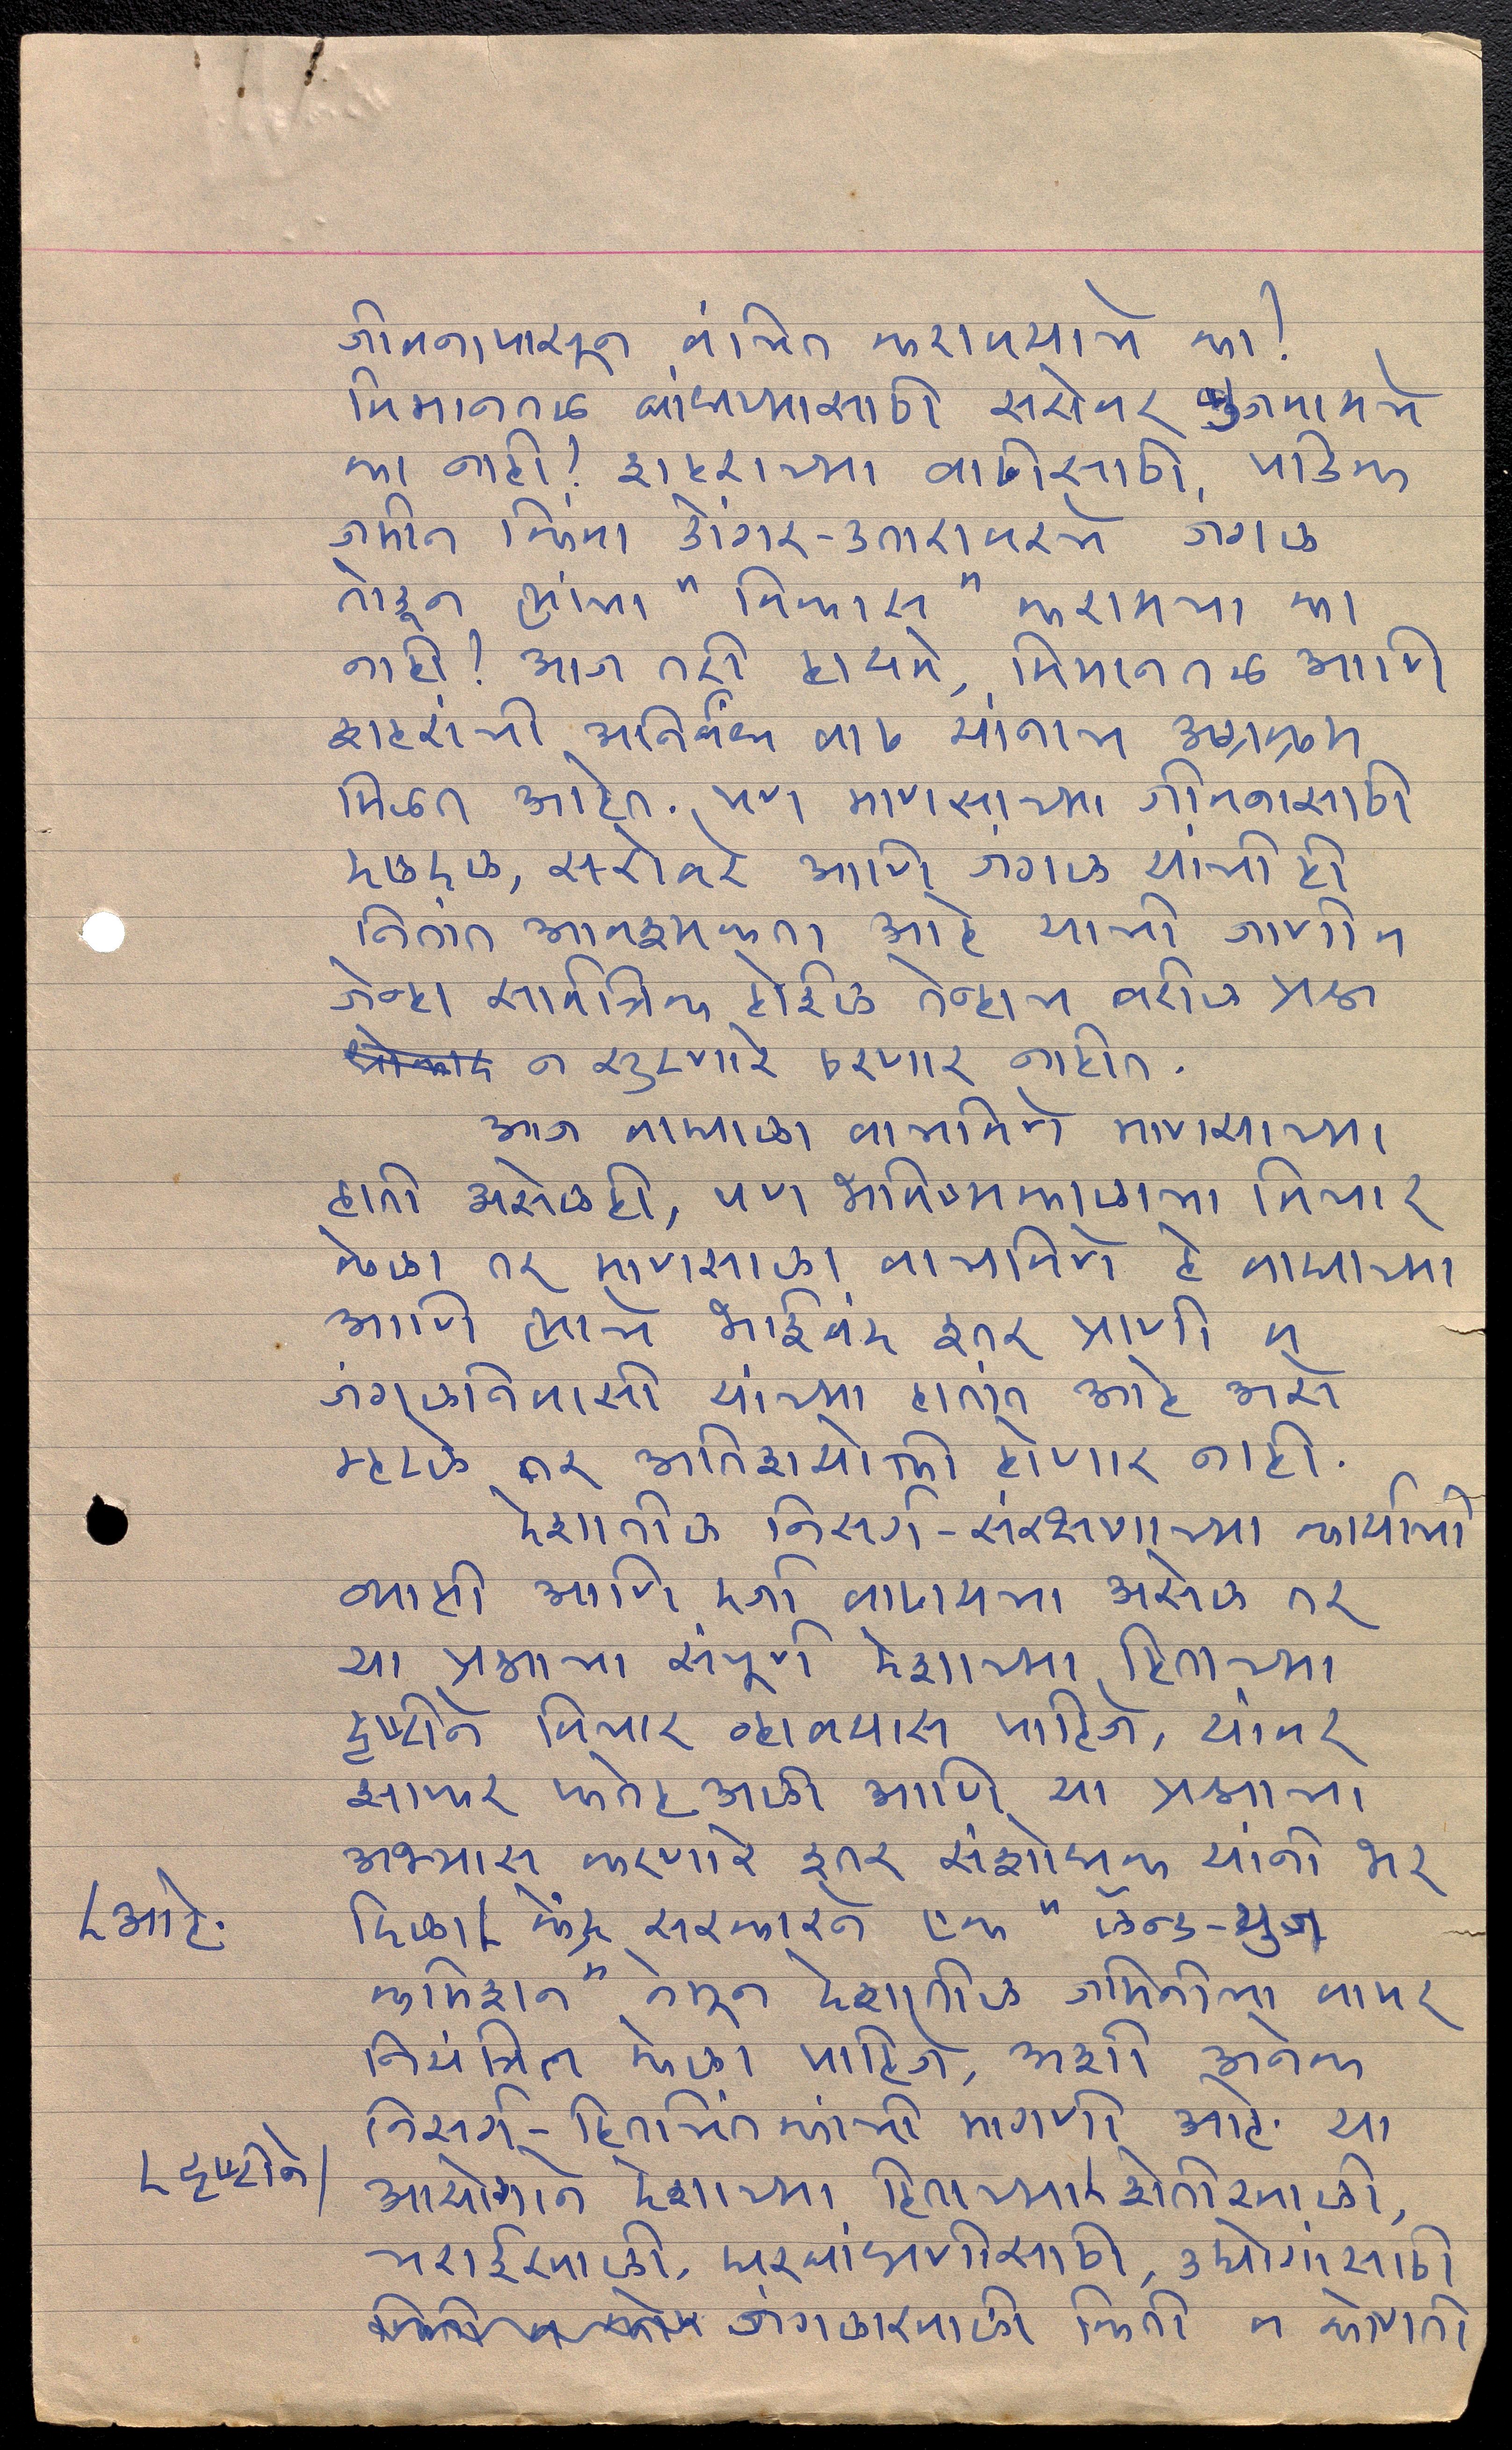 जीवनापासून वंचित करावयाचे का?
विमानतळ बांधण्यासाठी सरोवर बुजवायचे
का नाही? शहराच्या वाढीसाठी, पडिक
जमीन किंवा डोंगर-उतारावरचे जंगल
तोडून त्यांचा "विकास" करायचा का
नाही? आज तरी हायवे, विमानतळ आणि
शहरांची अनिर्बंध वाढ यांनाच अग्रक्रम
मिळत आहेत. पण माणसांच्या जीवनासाठी
दलदल, सरोवरे आणि जंगल यांची ही
नितांत आवश्यकता आहे याची जाणीव
जेव्हा सार्वत्रिक होईल तेव्हाच वरील प्रश्न
न सुटणारे ठरणार नाहीत.
आज वाघाला वाचविणे माणसाच्या
हाती असेलही, पण भविष्यकाळाचा विचार
केला तर माणसाला वाचविणे हे वाघाच्या
आणि त्याचे भाईबंद इतर प्राणी व
जंगलनिवासी यांच्या हातांत आहे असे
म्हटले तर अतिशयोक्ती होणार नाही.
देशातील निसर्ग-संरक्षणाच्या कार्याची
व्याप्ती आणि दर्जा वाढायचा असेल तर
या प्रश्नाचा संपूर्ण देशाच्या हिताच्या
दृष्टीने विचार व्हावयास पाहिजे, यांवर
साफर फतेहअली आणि या प्रश्नाचा
अभ्यास करणारे इतर संशोधक यांनी भर
दिला आहे. केंद्र सरकारने एक "लॅन्ड-यूज
कमिशन" नेमून देशातील जमिनीचा वापर
नियंत्रित केला पाहिजे, अशी अनेक
निसर्ग-हितचिंतकांची मागणी आहे. या
आयोगाने देशाच्या हिताच्या दृष्टीने शेतीखाली,
चराईखाली, घरबांधणीसाठी, उद्योगांसाठी
जंगलाखाली किती व कोणती